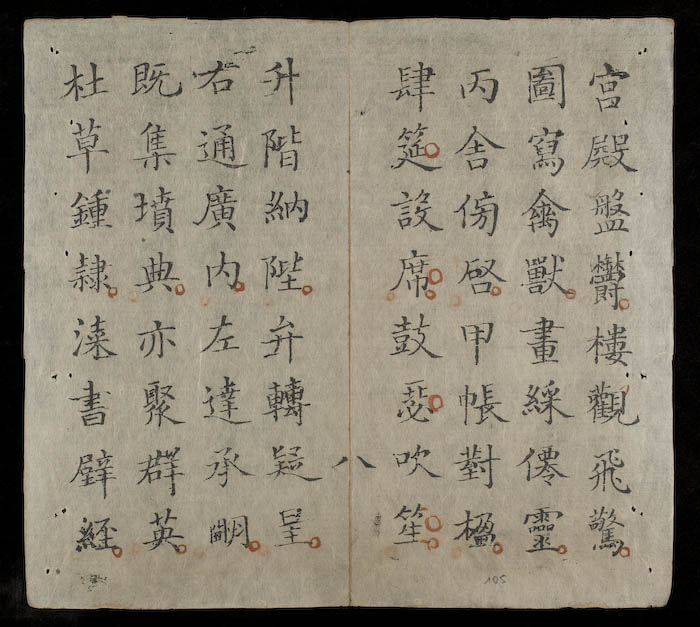 宮殿盤欝樓觀飛驚
圖寫禽獸畫綵僊靈
丙舍傍啓甲帳對楹
肆筵設席鼓瑟吹笙
八
升階納陛弁轉疑星
右通廣内左達承明
既集墳典亦聚群英
杜草鍾隷漆書壁經
105